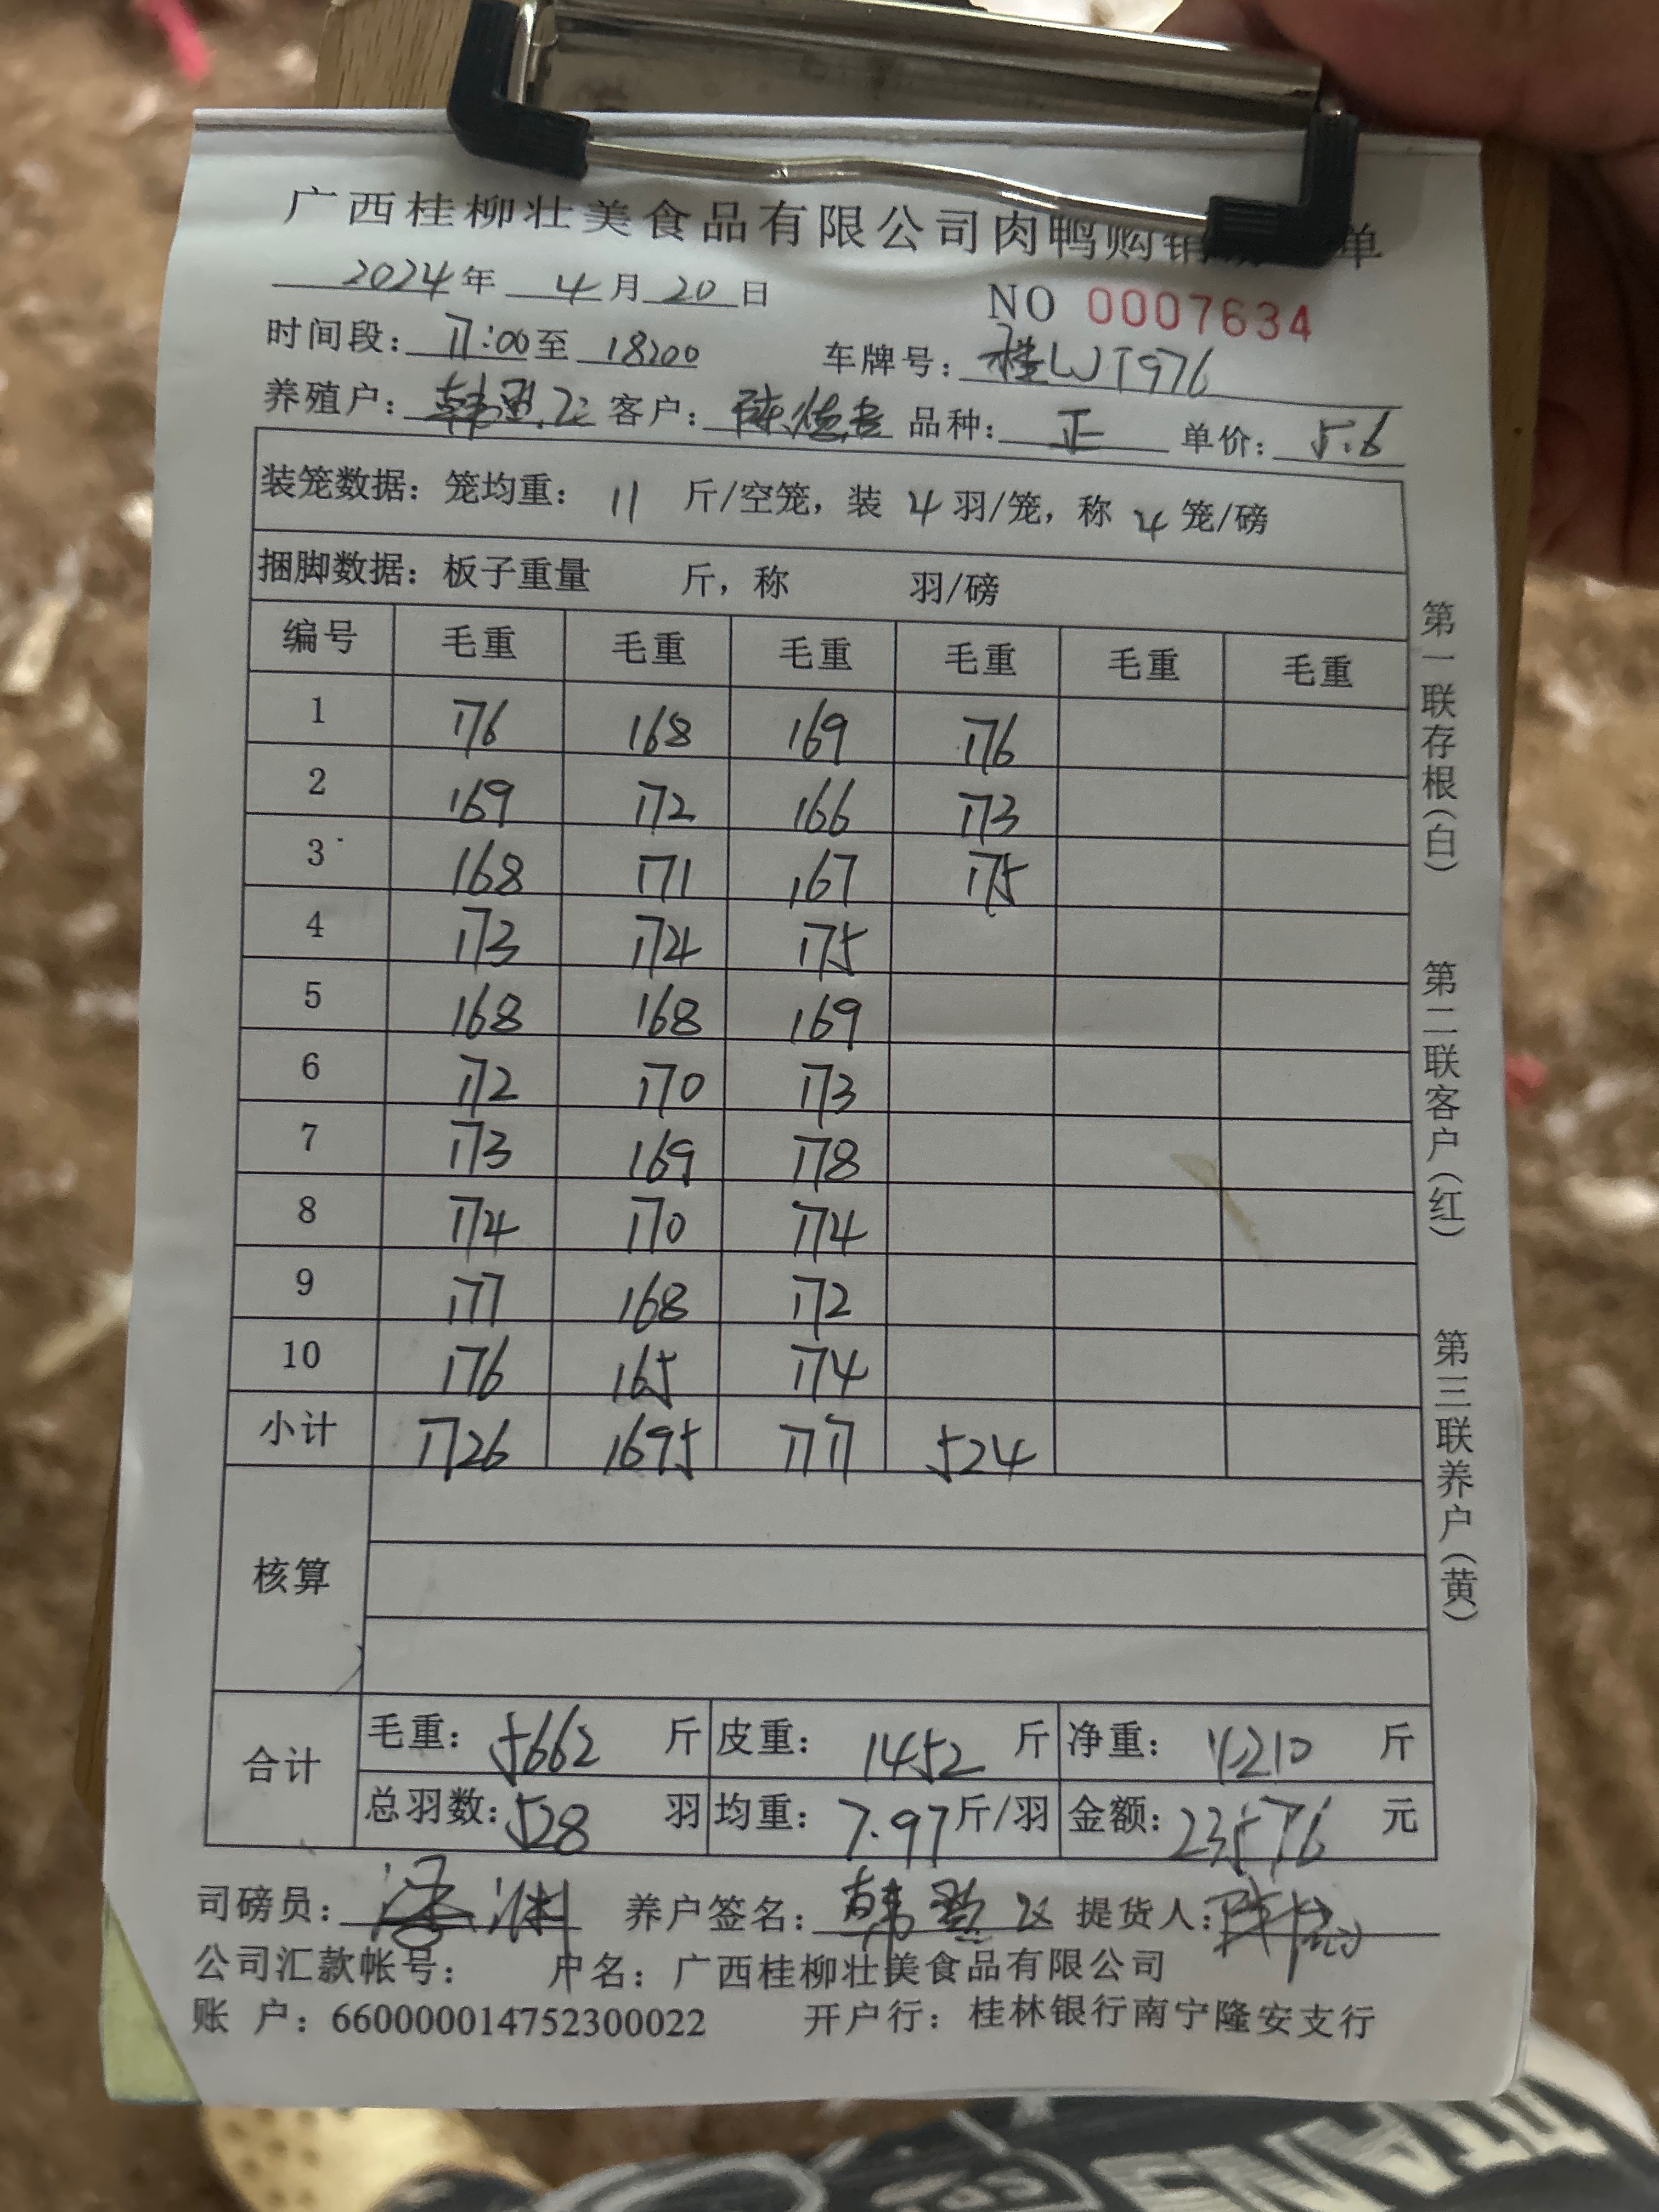 广西桂柳壮美食品有限公司肉鸭购销 单
2024年 4月20日 NO 0007634
时间段：17:00至 18:00 车牌号：桂WT976
养殖户：韩 飞 客户：陈 品种：正 单价：5.6
装笼数据：笼均重：11 斤/空笼，装 4 羽/笼，称 4 笼/磅
捆脚数据：板子重量 斤，称 羽/磅
编号 毛重 毛重 毛重 毛重 毛重 毛重
1 176 168 169 176
2 169 172 166 173
3 168 171 167 175
4 173 174 175
5 168 168 169
6 172 170 173
7 173 169 178
8 174 170 174
9 177 168 172
10 176 165 174
小计 1726 1695 1717 524
核算
合计 毛重：5662 斤 皮重：1452 斤 净重：4210 斤
总羽数：528 羽 均重：7.97斤/羽 金额：23576 元
司磅员： 养户签名：韩 飞 提货人：陈
公司汇款帐号： 户名：广西桂柳壮美食品有限公司
账 户：660000014752300022 开户行：桂林银行南宁隆安支行
第一联存根（白） 第二联客户（红） 第三联养户（黄）
TITANS